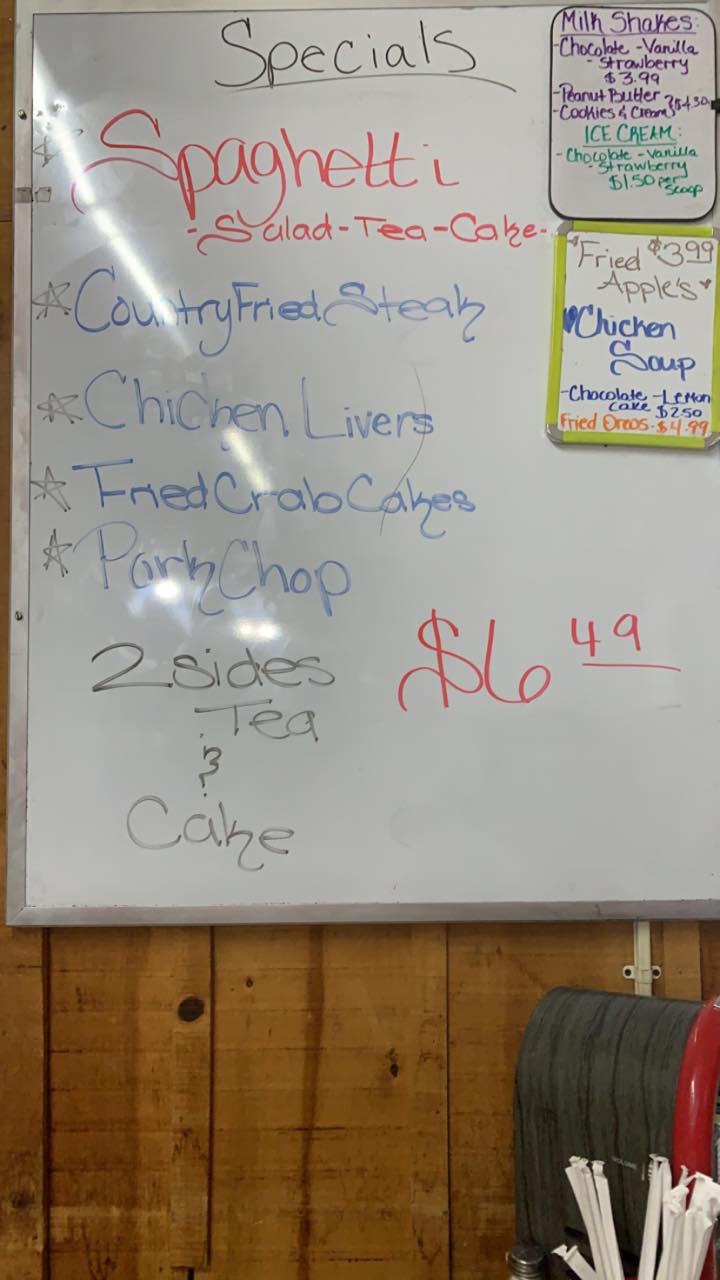 Specials
Spaghetti
-Salad-Tea-Cake-
Country Fried Steak
Chicken Livers
Fried Crab Cakes
Pork Chop
2 sides
Tea
&
Cake
$6 49
Milk Shakes:
-Chocolate -Vanilla
-Strawberry
$3.99
-Peanut Butter
-Cookies & Cream } $4.30
ICE CREAM:
-Chocolate -Vanilla
-Strawberry
$1.50 per
scoop
Fried $3.99
Apple's
Chicken
Soup
-Chocolate -Lemon
cake $2.50
Fried Oreos-$4.99